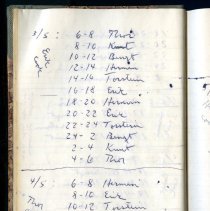 3/5 : 6-8 Thor
8-10 Knut
10-12 Bengt
12-14 Herman
14-16 Torstein
16-18 Erik
18-20 Herman
20-22 Erik
22-24 Torstein
24-2 Bengt
2-4 Knut
4-6 Thor
4/5 : 6-8 Herman
8-10 Erik
10-12 Torstein